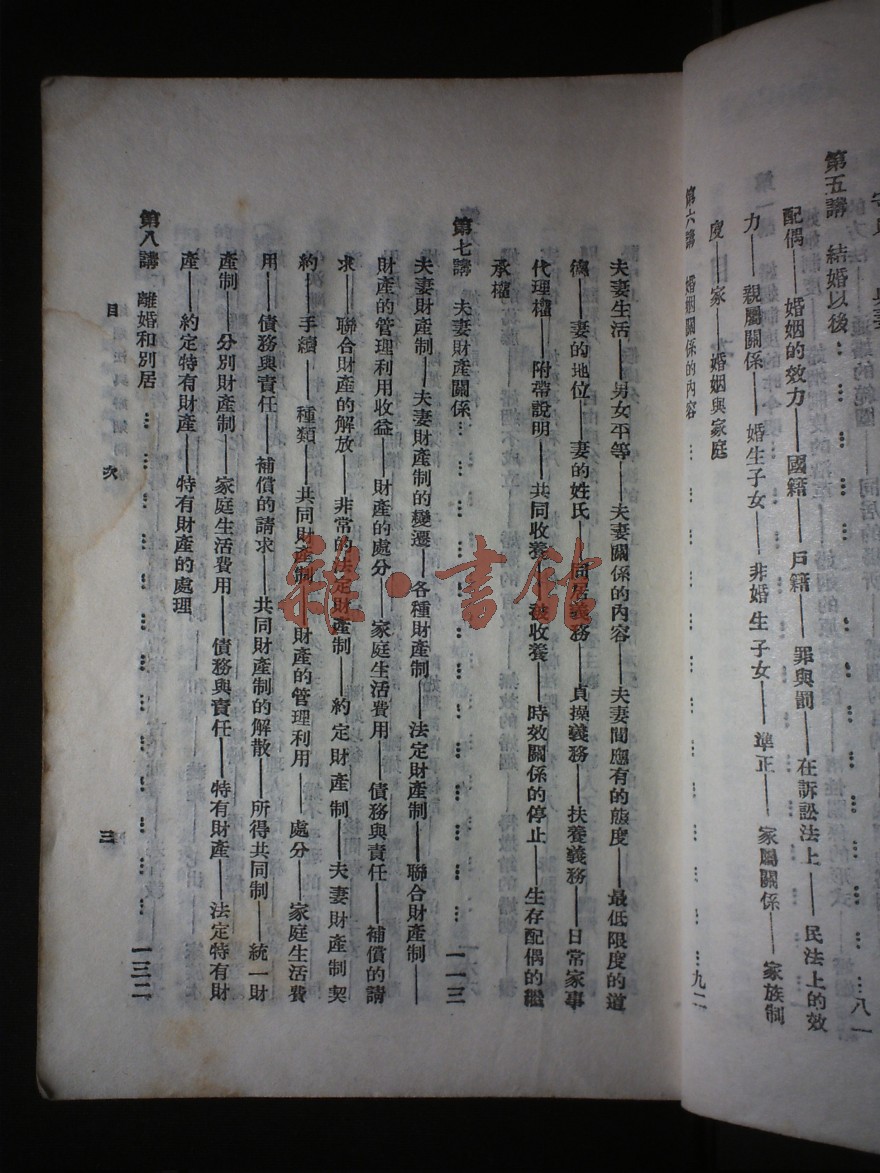 第五講　結婚以後……八一
配偶——婚姻的效力——國籍——戶籍——罪與罰——在訴訟法上——民法上的效
力——親屬關係——婚生子女——非婚生子女——準正——家屬關係——家族制
度——家——婚姻與家庭
第六講　婚姻關係的內容……九二
夫妻生活——男女平等——夫妻關係的內容——夫妻間應有的態度——最低限度的道
德——妻的地位——妻的姓氏——同居義務——貞操義務——扶養義務——日常家事
代理權——附帶說明——共同收養——被收養——時效關係的停止——生存配偶的繼
承權
第七講　夫妻財產關係……一一三
夫妻財產制——夫妻財產制的變遷——各種財產制——法定財產制——聯合財產制——
財產的管理利用收益——財產的處分——家庭生活費用——債務與責任——補償的請
求——聯合財產的解放——非常的法定財產制——約定財產制——夫妻財產制契
約——手續——種類——共同財產制——財產的管理利用——處分——家庭生活費
用——債務與責任——補償的請求——共同財產制的解散——所得共同制——統一財
產制——分別財產制——家庭生活費用——債務與責任——特有財產——法定特有財
產——約定特有財產——特有財產的處理
第八講　離婚和別居……一三二
目次　三
雜·書館